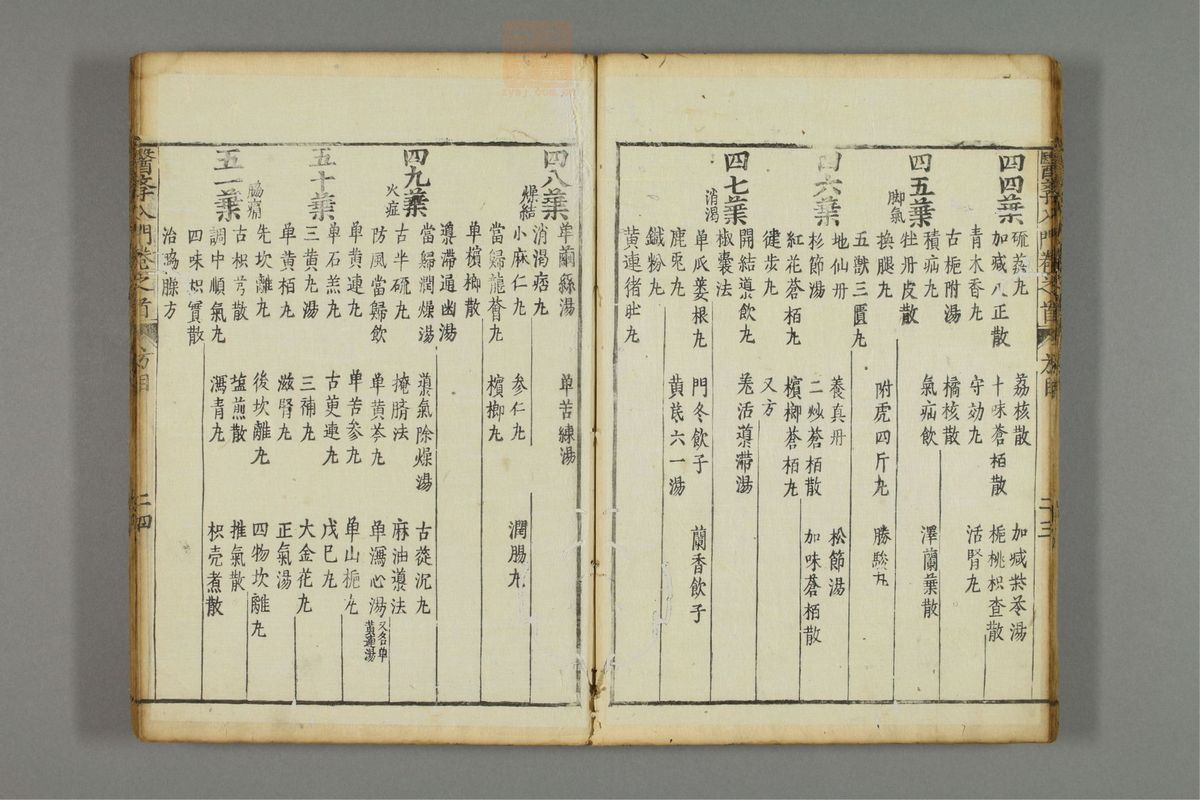 四四葉
硫荔丸 荔核散 加減柴苓湯
加減八正散 十味蒼栢散 梔桃枳查散
青木香丸 守効丸 活腎丸
古梔附湯 橘核散
四五葉
積疝丸 氣疝飲 澤蘭葉散
脚氣
牡丹皮散
換腿丸 附虎四斤丸 勝駿丸
五獸三匱丸
地仙丹 養真丹 松節湯
四六葉
杉節湯 二炒蒼栢散 加味蒼栢散
紅花蒼栢丸 檳榔蒼栢丸
健步丸 又方
開結導飲丸 羗活導滯湯
四七葉
椒囊法
消渴
单瓜蔞根丸 門冬飲子 蘭香飲子
鹿兎丸 黄芪六一湯
鐵粉丸
黄連猪肚丸
醫學入門卷之首 方目 二十三
四八葉
单蘭絲湯 单苦楝湯
消渴痞丸
燥結
小麻仁丸 参仁丸 潤腸丸
當歸龍薈丸 檳榔丸
单檳榔散
導滯通幽湯
四九葉
當歸潤燥湯 導氣除燥湯 古蓯沉丸
古半硫丸 掩臍法 麻油導法
火症
防風當歸飲 单黄芩丸 单瀉心湯 又名单黄連湯
单黄連丸 单苦参丸 单山梔丸
五十葉
单石羔丸 古萸連丸 戊巳丸
三黄丸湯 三補丸 大金花丸
单黄栢丸 滋腎丸 正氣湯
先坎離丸 後坎離丸 四物坎離丸
脇痛
五一葉
古枳芎散 塩煎散 推氣散
調中順氣丸 瀉青丸 枳壳煮散
四味枳實散
治脇臊方
醫學入門卷之首 方目 二四